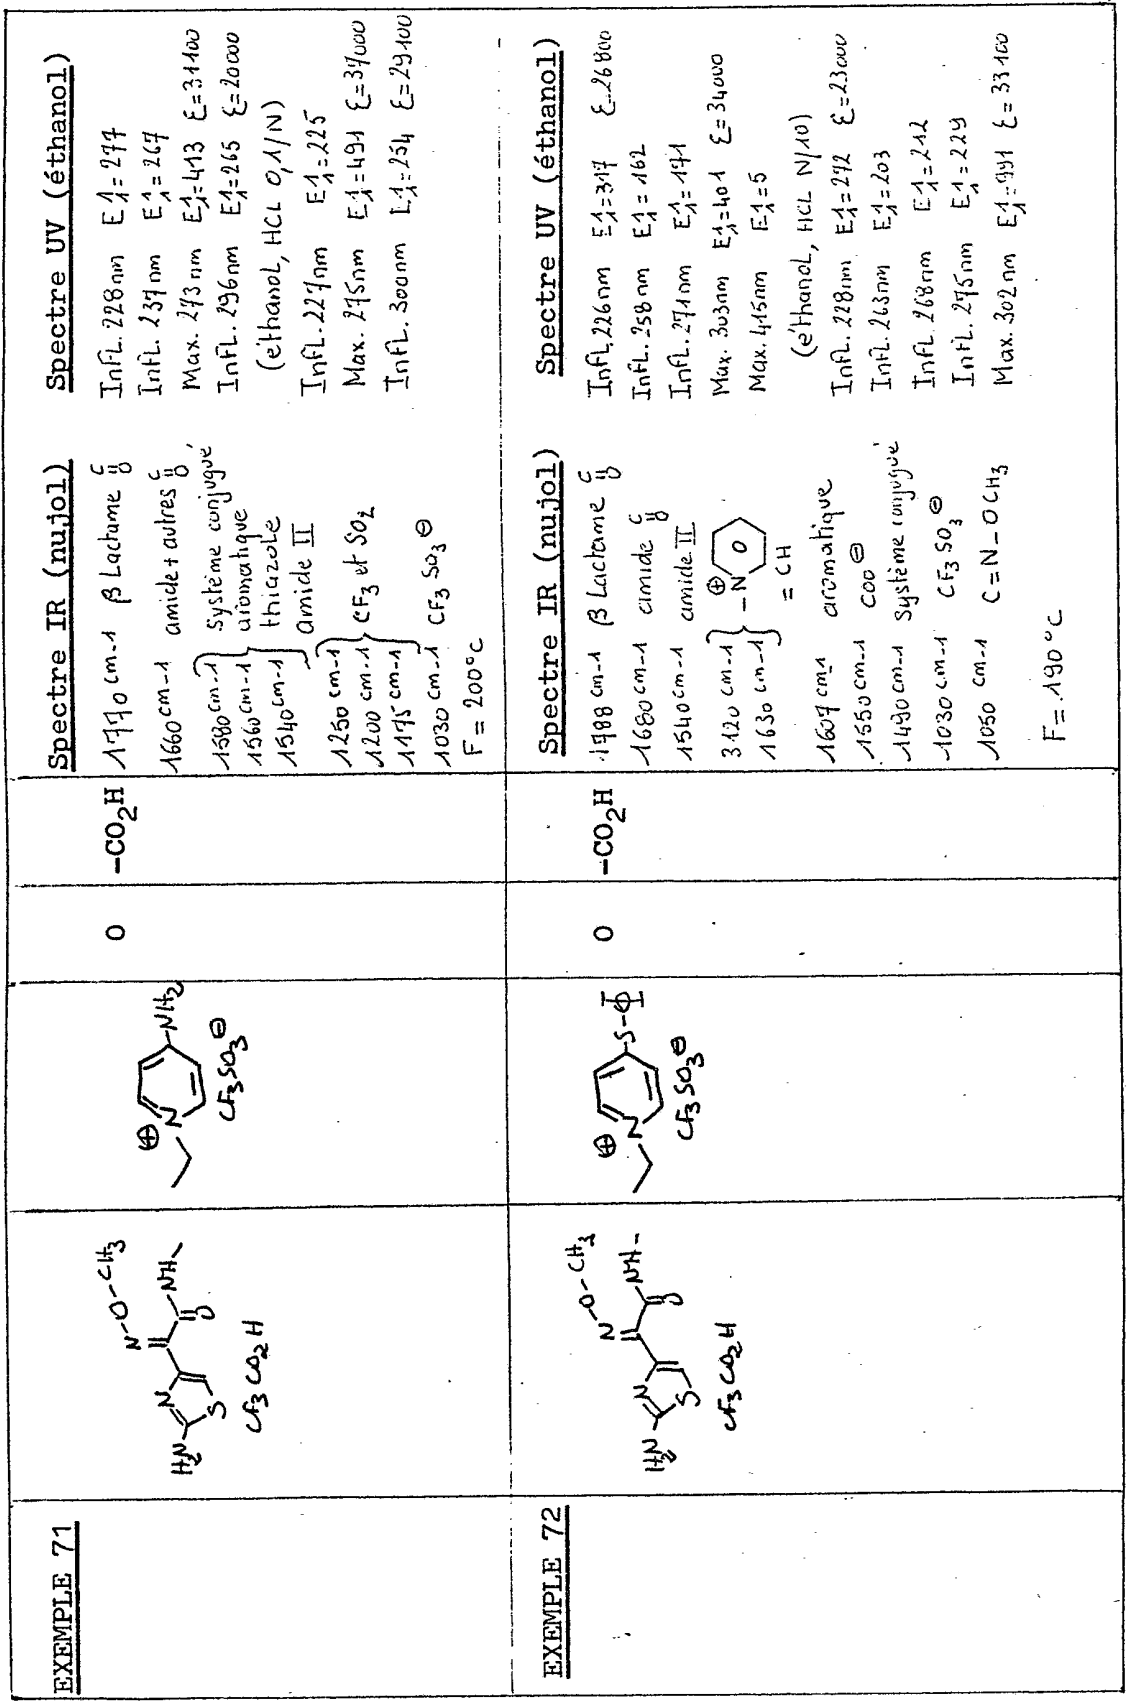 EXEMPLE 71
H₂N
N
S
N-O-CH₃
O
NH-
CF₃ CO₂H
⊕
N
-NH₂
CF₃SO₃⊖
O
-CO₂H
Spectre IR (nujol)
1770 cm-1 β Lactame C=O
1660 cm-1 amide + autres C=O
1580 cm-1 Système conjugué,
1560 cm-1 aromatique
1540 cm-1 thiazole
amide II
1250 cm-1
1200 cm-1 CF₃ et SO₂
1175 cm-1
1030 cm-1 CF₃ SO₃⊖
F = 200°C
Spectre UV (éthanol)
Infl. 228nm E1/1 = 277
Infl. 237nm E1/1 = 267
Max. 273nm E1/1 = 413 ε = 31100
Infl. 296nm E1/1 = 265 ε = 20000
(éthanol, HCL 0,1/N)
Infl. 227nm E1/1 = 225
Max. 275nm E1/1 = 491 ε = 37000
Infl. 300nm E1/1 = 254 ε = 29100
EXEMPLE 72
H₂N
N
S
N-O-CH₃
O
NH-
CF₃ CO₂H
⊕
N
-S-
CF₃ SO₃⊖
O
-CO₂H
Spectre IR (nujol)
1788 cm-1 β Lactame C=O
1680 cm-1 amide C=O
1540 cm-1 amide II
3120 cm-1 -N⊕
1630 cm-1 = CH
1607 cm-1 aromatique
1550 cm-1 COO⊖
1490 cm-1 Système conjugué
1030 cm-1 CF₃ SO₃⊖
1050 cm-1 C=N-OCH3
F = 190°C
Spectre UV (éthanol)
Infl. 226nm E1/1 = 317 ε = 26800
Infl. 258nm E1/1 = 162
Infl. 271nm E1/1 = 171
Max. 303nm E1/1 = 401 ε = 34000
Max. 415nm E1/1 = 5
(éthanol, HCL N/10)
Infl. 228nm E1/1 = 272 ε = 23000
Infl. 263nm E1/1 = 203
Infl. 268nm E1/1 = 212
Infl. 275nm E1/1 = 229
Max. 302nm ε = 33100